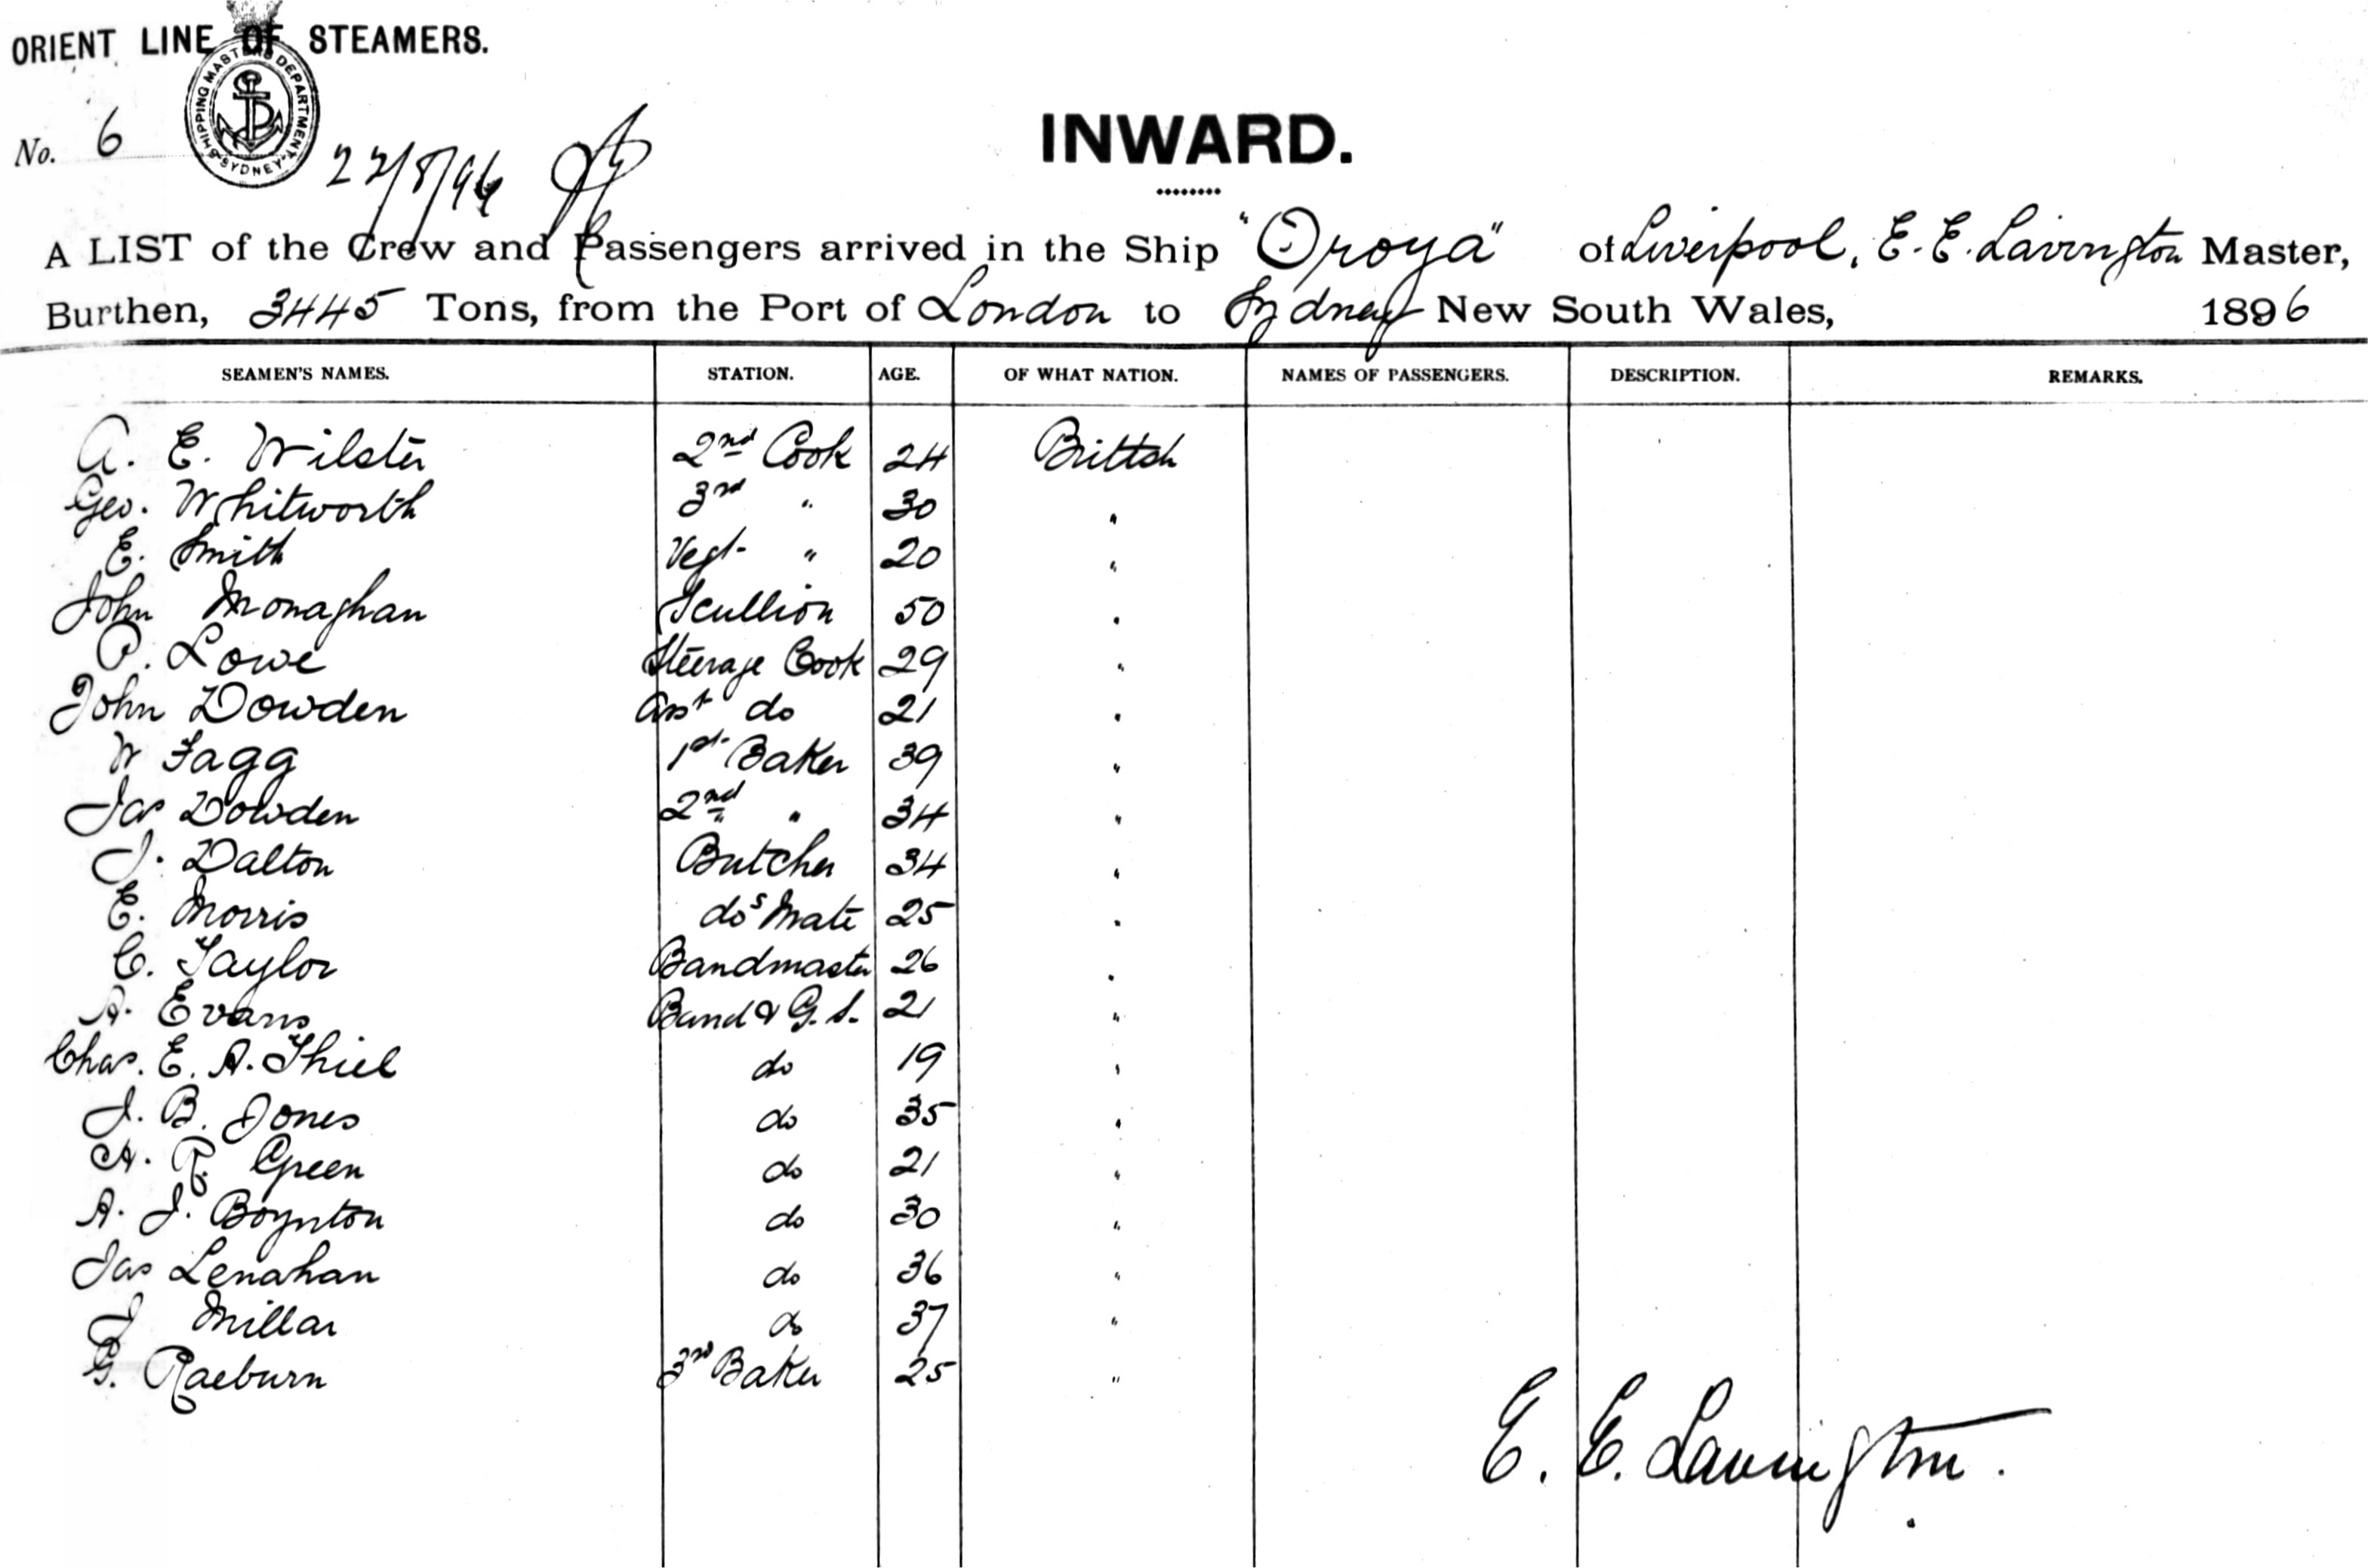 ORIENT LINE OF STEAMERS.
SHIPPING MASTERS DEPARTMENT SYDNEY
No. 6
22/8/96
INWARD.
A LIST of the Crew and Passengers arrived in the Ship "Oroya" of Liverpool, E. E. Lavington Master,
Burthen, 3445 Tons, from the Port of London to Sydney New South Wales, 1896
SEAMEN'S NAMES. STATION. AGE. OF WHAT NATION. NAMES OF PASSENGERS. DESCRIPTION. REMARKS.
A. E. Wilster 2nd Cook 24 British
Geo. Whitworth 3rd " 30 "
E. Smith Vegt. " 20 "
John Monaghan Scullion 50 "
P. Lowe Steerage Cook 29 "
John Dowden Asst do 21 "
W Fagg 1st Baker 39 "
Jas Dowden 2nd " 34 "
J. Dalton Butcher 34 "
E. Morris do's Mate 25 "
C. Taylor Bandmaster 26 "
A. Evans Band & G. S. 21 "
Chas. E. A. Thiel do 19 "
J. B. Jones do 35 "
A. R. Green do 21 "
A. J. Boynton do 30 "
Jas Lenahan do 36 "
J Millar do 37 "
G. Raeburn 3rd Baker 25 "
E. E. Lavington.